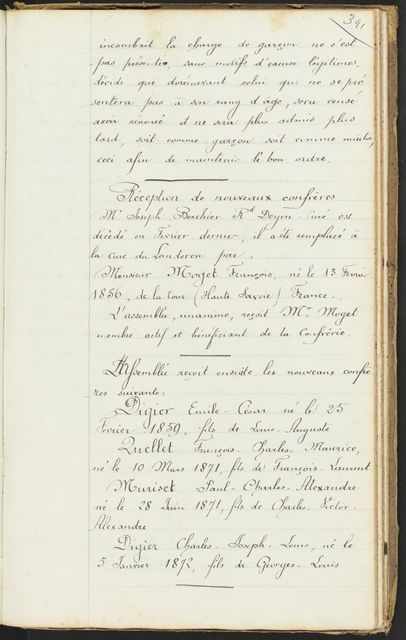 341
incombait la charge de garçon ne s'est
pas présenté, sans motifs d'excuse légitimes,
décide que dorénavant celui qui ne se pré-
sentera pas à son rang d'âge, sera censé
avoir renoncé et ne sera plus admis plus
tard, soit comme garçon soit comme maître,
ceci afin de maintenir le bon ordre.
Réception de nouveaux confrères.
Mr Joseph Berchier Rd Doyen-Curé est
décédé en Février dernier, il a été remplacé à
la cure du Landeron par:
Monsieur Moget François, né le 13 Février
1856, de la Tour (Haute Savoie) France.
L'assemblée, unanime, reçoit Mr Moget
membre actif et bénéficiant de la Confrérie.
L'Assemblée reçoit ensuite les nouveaux confrè-
res suivants:
Digier Emile-César né le 25
Février 1859, fils de Louis-Auguste
Quellet François-Charles-Maurice,
né le 10 Mars 1871, fils de François-Laurent
Muriset Paul-Charles-Alexandre
né le 28 Juin 1871, fils de Charles-Victor-
Alexandre
Digier Charles-Joseph-Louis, né le
5 Janvier 1872, fils de Georges-Louis